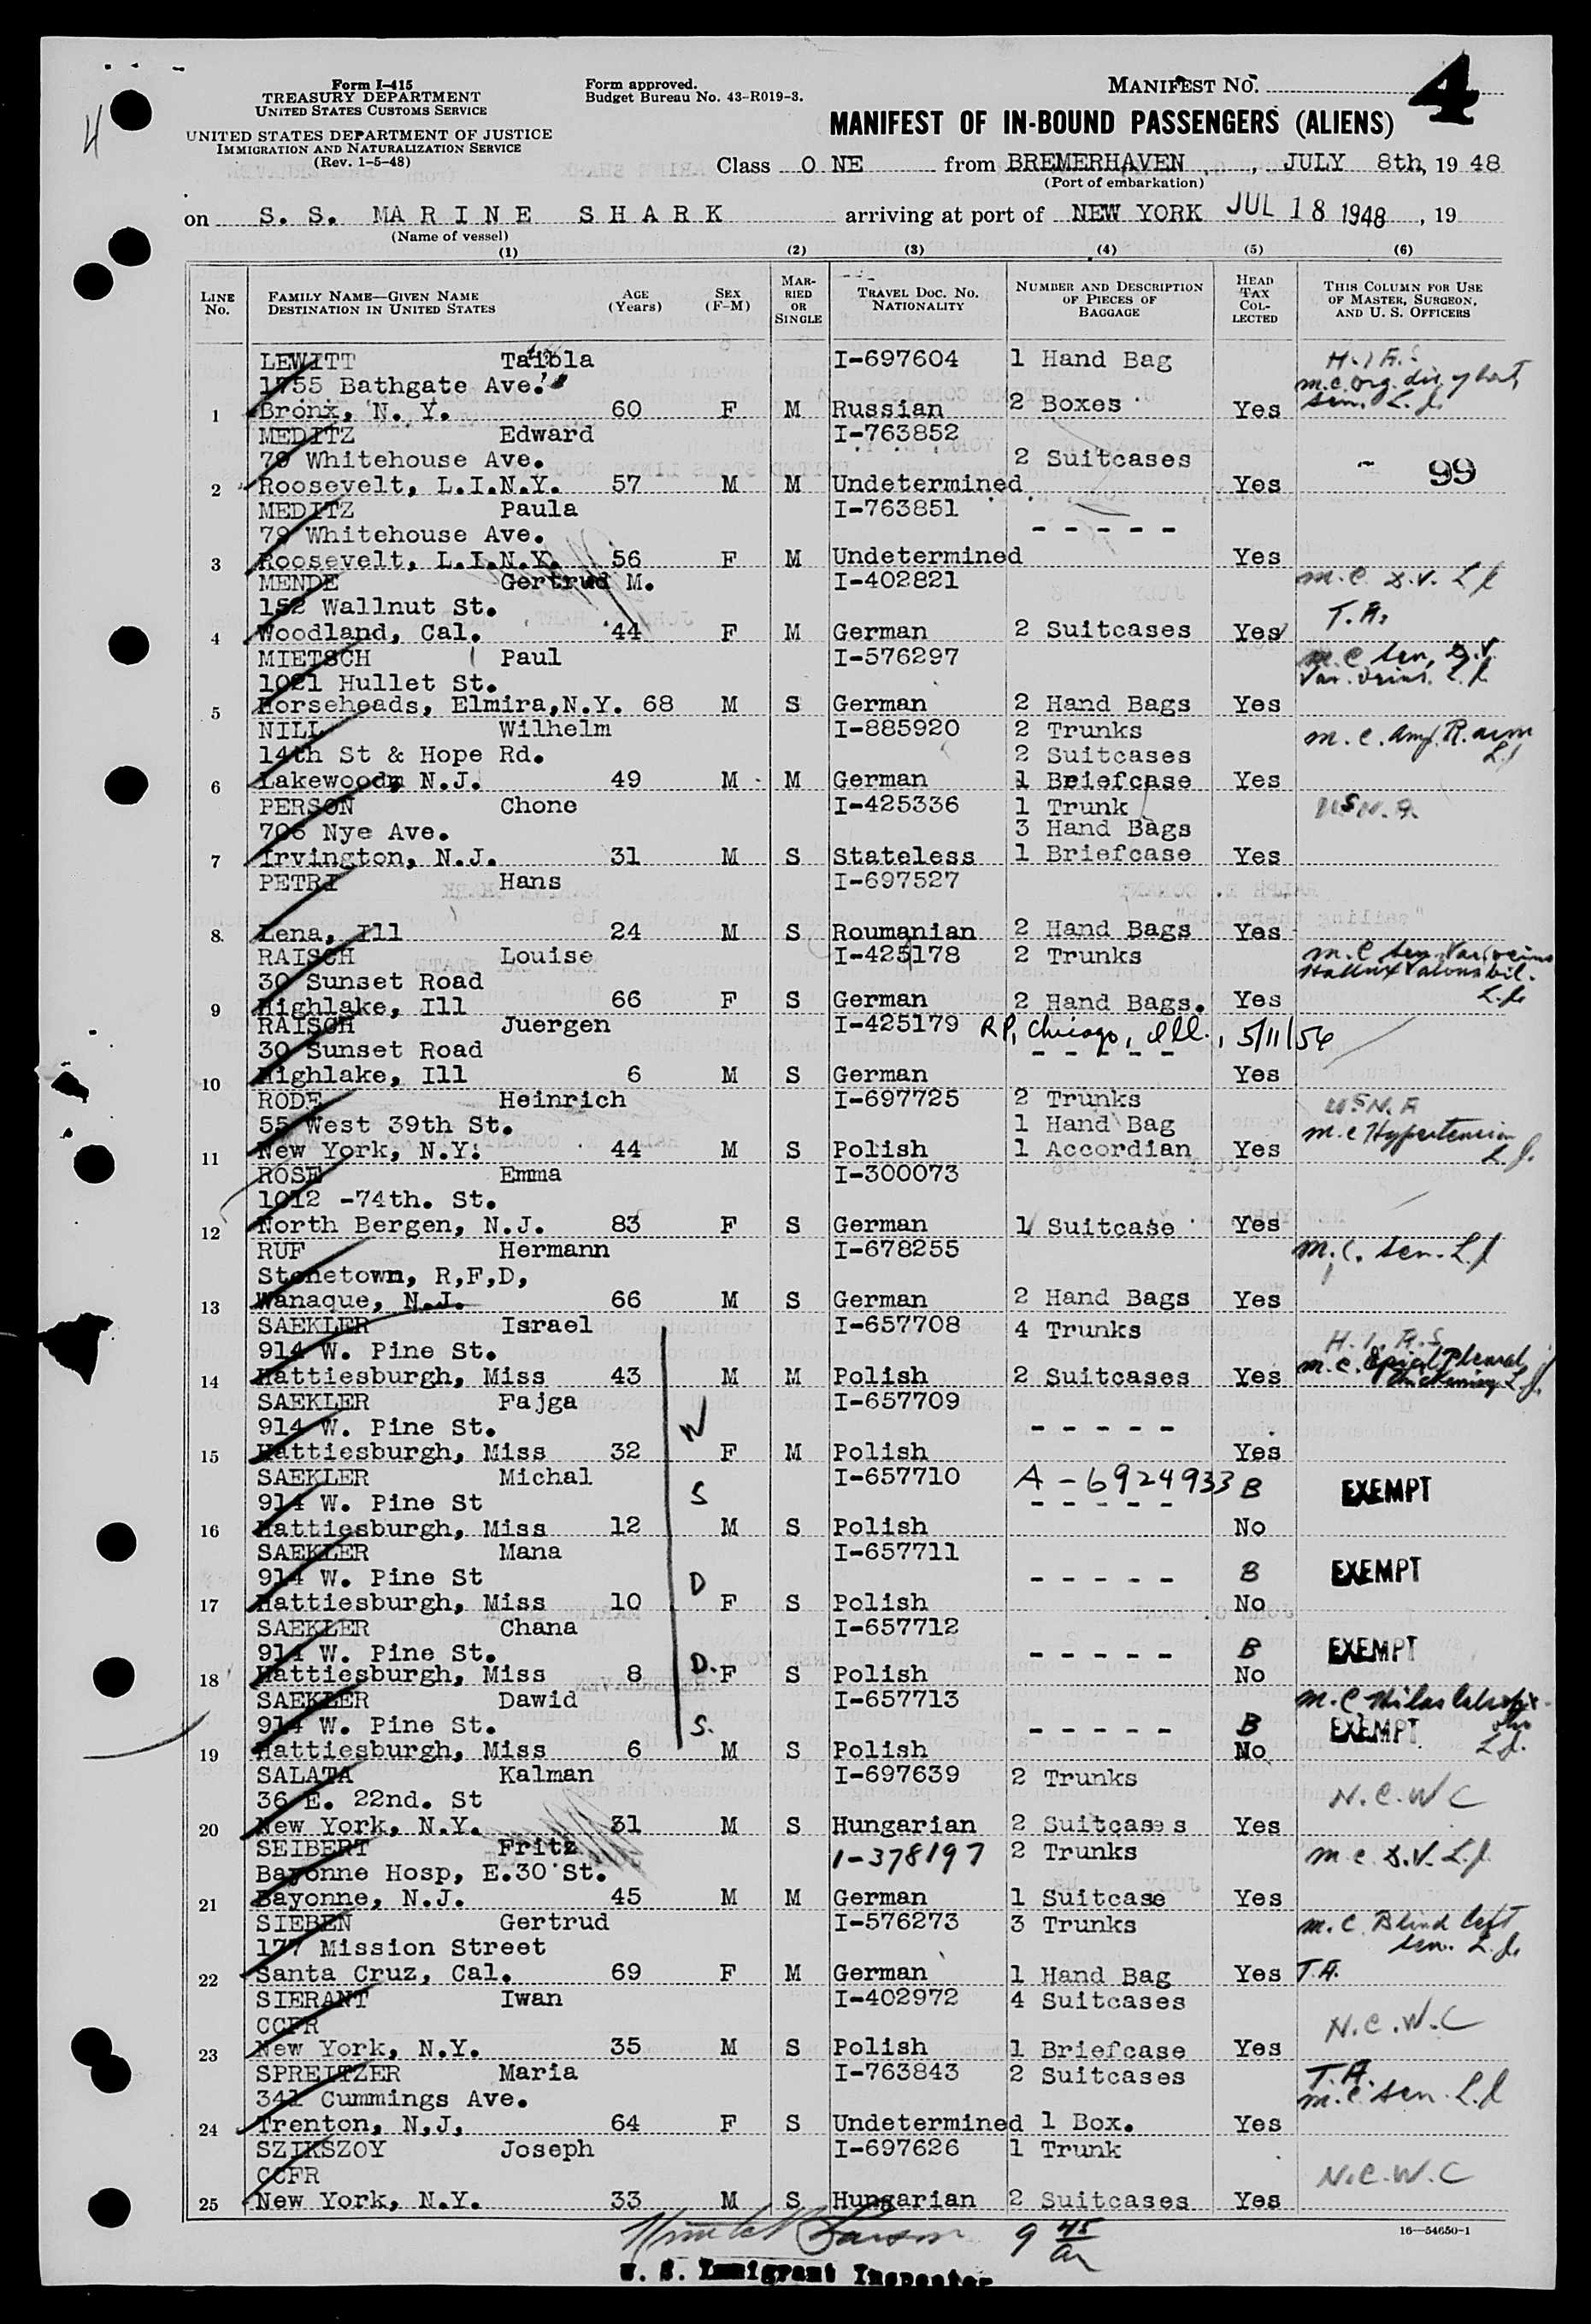 4
Form I-415
TREASURY DEPARTMENT
UNITED STATES CUSTOMS SERVICE
UNITED STATES DEPARTMENT OF JUSTICE
IMMIGRATION AND NATURALIZATION SERVICE
(Rev. 1-5-48)
Form approved.
Budget Bureau No. 43-R019-3.
MANIFEST NO. 4
MANIFEST OF IN-BOUND PASSENGERS (ALIENS)
Class O NE from BREMERHAVEN, JULY 8th, 19 48
(Port of embarkation)
on S. S. MARINE SHARK arriving at port of NEW YORK JUL 18 1948, 19
(Name of vessel)
(1) (2) (3) (4) (5) (6)
LINE NO. FAMILY NAME—GIVEN NAME DESTINATION IN UNITED STATES AGE (Years) SEX (F-M) MARRIED OR SINGLE TRAVEL DOC. NO. NATIONALITY NUMBER AND DESCRIPTION OF PIECES OF BAGGAGE HEAD TAX COLLECTED THIS COLUMN FOR USE OF MASTER, SURGEON, AND U. S. OFFICERS
LEWITT Taibla I-697604 1 Hand Bag H.I.A.S
1755 Bathgate Ave. m.c. org. dis. of hart
1 Bronx, N. Y. 60 F M Russian 2 Boxes Yes sen. L.f.
MEDITZ Edward I-763852
79 Whitehouse Ave. 2 Suitcases 99
2 Roosevelt, L.I.N.Y. 57 M M Undetermined Yes
MEDITZ Paula I-763851
79 Whitehouse Ave. - - - - -
3 Roosevelt, L.I.N.Y. 56 F M Undetermined Yes
MENDE Gertrud M. I-402821 m.c. D.V. L.f
152 Wallnut St. T.A.
4 Woodland, Cal. 44 F M German 2 Suitcases Yes
MIETSCH Paul I-576297 m.c. sen, D.V.
1021 Hullet St. Var. veins. L.f.
5 Horseheads, Elmira,N.Y. 68 M S German 2 Hand Bags Yes
NILL Wilhelm I-885920 2 Trunks m.c. Amp. R. arm
14th St & Hope Rd. 2 Suitcases L.f
6 Lakewood, N.J. 49 M M German 1 Briefcase Yes
PERSON Chone I-425336 1 Trunk USN.A.
706 Nye Ave. 3 Hand Bags
7 Irvington, N.J. 31 M S Stateless 1 Briefcase Yes
PETRI Hans I-697527
8 Lena, Ill 24 M S Roumanian 2 Hand Bags Yes
RAISCH Louise I-425178 2 Trunks m.c. sen. Var. veins
30 Sunset Road Hallux Valgus bil.
9 Highlake, Ill 66 F S German 2 Hand Bags. Yes L.f.
RAISCH Juergen I-425179 RP, Chicago, Ill., 5/11/56
30 Sunset Road - - - - -
10 Highlake, Ill 6 M S German Yes
RODE Heinrich I-697725 2 Trunks USN.A
55 West 39th St. 1 Hand Bag m.c Hypertension
11 New York, N.Y. 44 M S Polish 1 Accordian Yes L.f.
ROSE Emma I-300073
1012 -74th. St.
12 North Bergen, N.J. 83 F S German 1 Suitcase Yes
RUF Hermann I-678255 m.c. sen. L.f
Stonetown, R,F,D,
13 Wanaque, N.J. 66 M S German 2 Hand Bags Yes
SAEKLER Israel I-657708 4 Trunks H.I.A.S
914 W. Pine St. m.c. Apical Pleural
14 Hattiesburgh, Miss 43 M M Polish 2 Suitcases Yes thickening L.f.
SAEKLER Fajga I-657709
914 W. Pine St. W - - - - -
15 Hattiesburgh, Miss 32 F M Polish Yes
SAEKLER Michal I-657710 A-6924933
914 W. Pine St S - - - - - B EXEMPT
16 Hattiesburgh, Miss 12 M S Polish No
SAEKLER Mana I-657711
914 W. Pine St D - - - - - B EXEMPT
17 Hattiesburgh, Miss 10 F S Polish No
SAEKLER Chana I-657712
914 W. Pine St. - - - - - B EXEMPT
18 Hattiesburgh, Miss 8 D. F S Polish No
SAEKLER Dawid I-657713 m.c
914 W. Pine St. S. - - - - - B EXEMPT
19 Hattiesburgh, Miss 6 M S Polish No L.f.
SALATA Kalman I-697639 2 Trunks
36 E. 22nd. St N.C.W.C
20 New York, N.Y. 31 M S Hungarian 2 Suitcases Yes
SEIBERT Fritz 1-378197 2 Trunks m.c. D.V. L.f.
Bayonne Hosp, E.30 St.
21 Bayonne, N.J. 45 M M German 1 Suitcase Yes
SIEBEN Gertrud I-576273 3 Trunks m.c. Blind left
177 Mission Street sen. L.f.
22 Santa Cruz, Cal. 69 F M German 1 Hand Bag Yes T.A.
SIERANT Iwan I-402972 4 Suitcases
CCFR N.C.W.C
23 New York, N.Y. 35 M S Polish 1 Briefcase Yes
SPREITZER Maria I-763843 2 Suitcases T.A.
341 Cummings Ave. m.c. sen. L.f
24 Trenton, N,J, 64 F S Undetermined 1 Box. Yes
SZIKSZOY Joseph I-697626 1 Trunk
CCFR N.C.W.C
25 New York, N.Y. 33 M S Hungarian 2 Suitcases Yes
16—54650-1
9 45 am
U. S. Immigrant Inspector